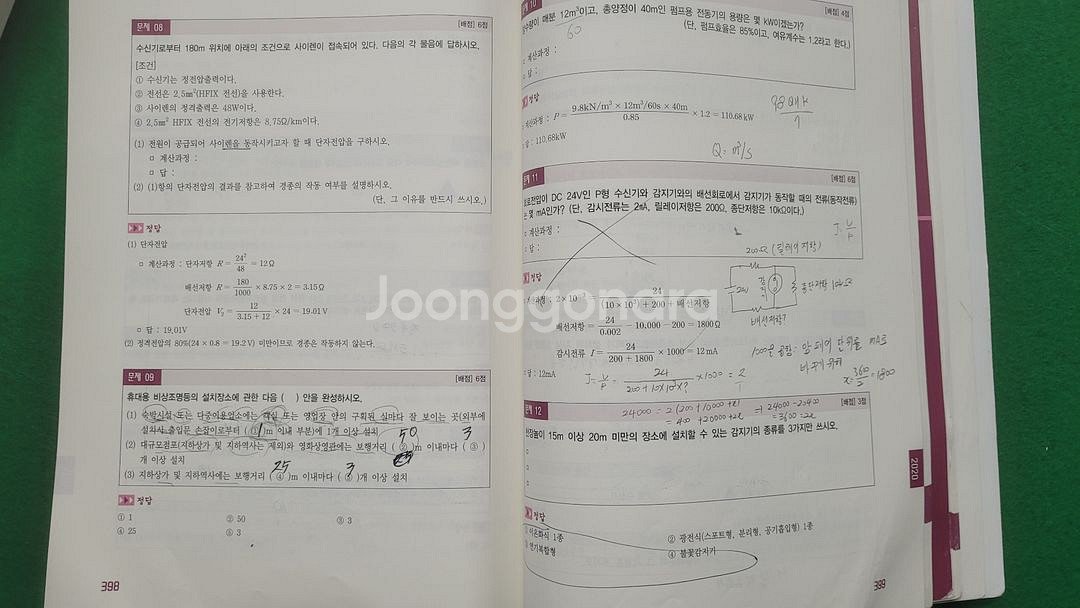 문제 08
[배점] 6점
수신기로부터 180m 위치에 아래의 조건으로 사이렌이 접속되어 있다. 다음의 각 물음에 답하시오.
[조건]
① 수신기는 정전압출력이다.
② 전선은 2.5㎟(HFIX 전선)을 사용한다.
③ 사이렌의 정격출력은 48W이다.
④ 2.5㎟ HFIX 전선의 전기저항은 8.75Ω/km이다.
(1) 전원이 공급되어 사이렌을 동작시키고자 할 때 단자전압을 구하시오.
▫ 계산과정 :
▫ 답 :
(2) (1)항의 단자전압의 결과를 참고하여 경종의 작동 여부를 설명하시오.
(단, 그 이유를 반드시 쓰시오.)
정답
(1) 단자전압
▫ 계산과정 : 단자저항 R = 24²/48 = 12Ω
배선저항 R = 180/1000 × 8.75 × 2 = 3.15Ω
단자전압 V₂ = 12/(3.15+12) × 24 = 19.01V
▫ 답 : 19.01V
(2) 정격전압의 80%(24 × 0.8 = 19.2V) 미만이므로 경종은 작동하지 않는다.
문제 09
[배점] 6점
휴대용 비상조명등의 설치장소에 관한 다음 ( ) 안을 완성하시오.
(1) 숙박시설 또는 다중이용업소에는 객실 또는 영업장 안의 구획된 실마다 잘 보이는 곳(외부에
설치시 출입문 손잡이로부터 (①)m 이내 부분)에 1개 이상 설치
1
50
3
(2) 대규모점포(지하상가 및 지하역사는 제외)와 영화상영관에는 보행거리 (②)m 이내마다 (③)
개 이상 설치
25
3
(3) 지하상가 및 지하역사에는 보행거리 (④)m 이내마다 (⑤)개 이상 설치
정답
① 1
② 50
③ 3
④ 25
⑤ 3
398
10
[배점] 4점
매분 12m³이고, 총양정이 40m인 펌프용 전동기의 용량은 몇 kW이겠는가?
60
(단, 펌프효율은 85%이고, 여유계수는 1.2라고 한다.)
▫ 계산과정 :
▫ 답 :
정답
계산과정 : P = 9.8kN/m³ × 12m³/60s × 40m / 0.85 × 1.2 = 110.68kW
답 : 110.68kW
Q= m³/s
문제 11
[배점] 6점
DC 24V인 P형 수신기와 감지기와의 배선회로에서 감지기가 동작할 때의 전류(동작전류)
는 몇 mA인가? (단, 감시전류는 2mA, 릴레이저항은 200Ω, 종단저항은 10kΩ이다.)
계산과정 :
답 :
200Ω (릴레이저항)
24V
감지기
종단저항 10kΩ
배선저항?
정답
2 × 10⁻³ = 24/((10 × 10³) + 200 + 배선저항)
배선저항 = 24/0.002 - 10,000 - 200 = 1800Ω
감시전류 I = 24/(200 + 1800) × 1000 = 12mA
답 : 12mA
24000 = 2(200+10000+x)
= 400+20000+2x
→ 24000-20400
=3600=2x
x=3600/2=1800
문제 12
[배점] 3점
천장높이 15m 이상 20m 미만의 장소에 설치할 수 있는 감지기의 종류를 3가지만 쓰시오.
정답
① 이온화식 1종
② 광전식(스포트형, 분리형, 공기흡입형) 1종
③ 연기복합형
④ 불꽃감지기
399
2020
Joonggonara